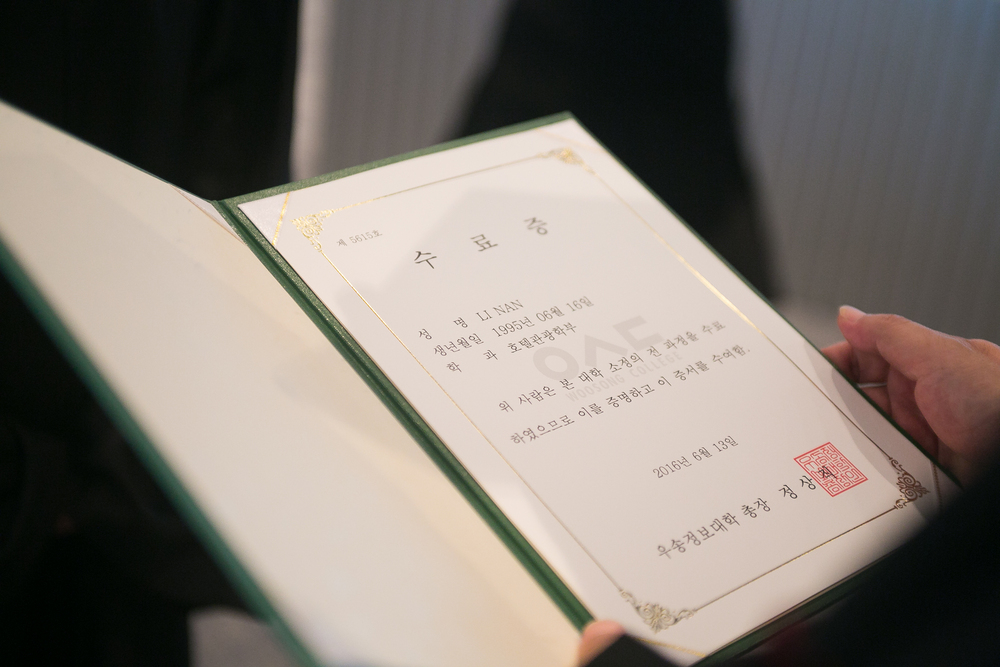 제 5615호
수 료 증
성 명 LI NAN
생년월일 1995년 06월 16일
학 과 호텔관광학부
WOOSONG COLLEGE
위 사람은 본 대학 소정의 전 과정을 수료
하였으므로 이를 증명하고 이 증서를 수여함.
2016년 6월 13일
우송정보대학 총장 정 상 직